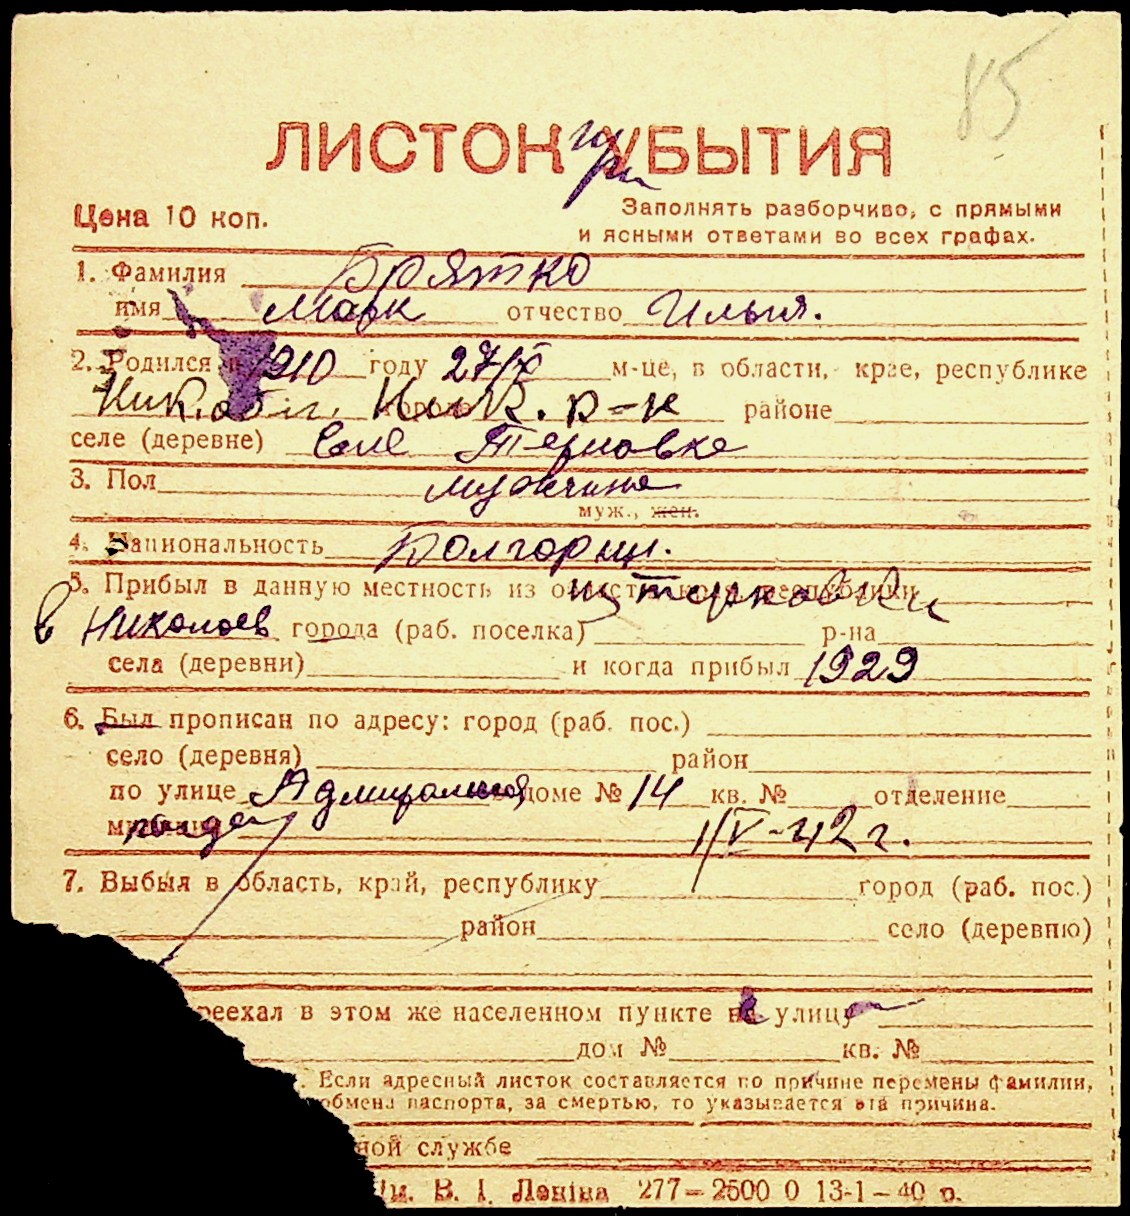 85
ЛИСТОК УБЫТИЯ
при
Цена 10 коп.
Заполнять разборчиво, с прямыми
и ясными ответами во всех графах.
1. Фамилия Брятко
имя Марк отчество Ильич.
2. Родился в 1910 году 27/IX м-це, в области, крае, республике
Ник. обл. Ник. р-н районе
селе (деревне) Селе Терновке
3. Пол мужчина
муж., жен.
4. Национальность Болгарин.
5. Прибыл в данную местность из области, края, республики из Терновки
в Николаев города (раб. поселка) р-на
села (деревни) и когда прибыл 1929
6. Был прописан по адресу: город (раб. пос.)
село (деревня) район
по улице Адмиральская доме № 14 кв. № отделение
милиции 1/V-42 г.
7. Выбыл в область, край, республику город (раб. пос.)
район село (деревню)
реехал в этом же населенном пункте на улицу
дом № кв. №
. Если адресный листок составляется по причине перемены фамилии,
обмена паспорта, за смертью, то указывается эта причина.
ной службе
ім. В. І. Леніна 277—2500 0 13-1—40 р.